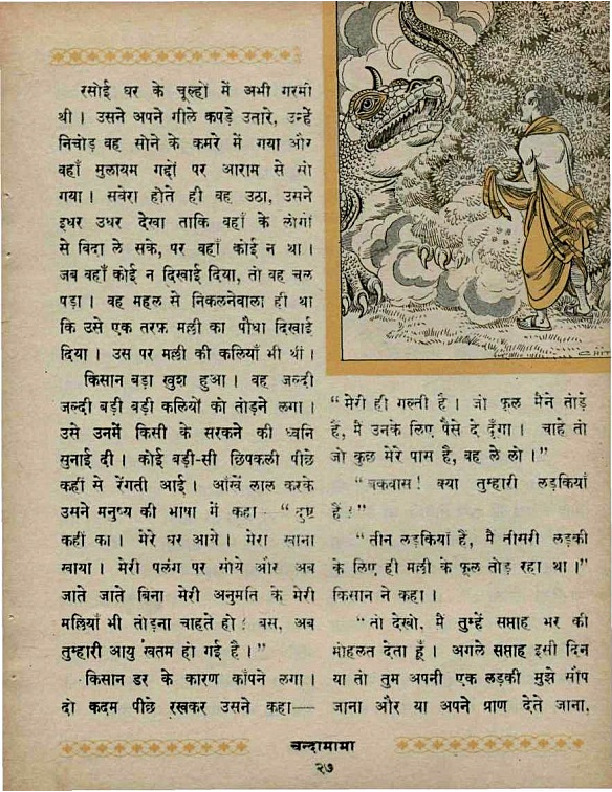 रसोई घर के चूल्हों में अभी गरमी
थी । उसने अपने गीले कपड़े उतारे, उन्हें
निचोड़ वह सोने के कमरे में गया और
वहाँ मुलायम गद्दों पर आराम से सो
गया । सवेरा होते ही वह उठा, उसने
इधर उधर देखा ताकि वहाँ के लोगों
से विदा ले सके, पर वहाँ कोई न था ।
जब वहाँ कोई न दिखाई दिया, तो वह चल
पड़ा । वह महल से निकलनेवाला ही था
कि उसे एक तरफ़ मल्ली का पौधा दिखाई
दिया । उस पर मल्ली की कलियाँ भी थीं ।
किसान बड़ा खुश हुआ । वह जल्दी
जल्दी बड़ी बड़ी कलियों को तोड़ने लगा ।
उसे उनमें किसी के सरकने की ध्वनि
सुनाई दी । कोई बड़ी-सी छिपकली पीछे
कहीं से रेंगती आई । आँखें लाल करके
उसने मनुष्य की भाषा में कहा—"दुष्ट
कहीं का । मेरे घर आये । मेरा खाना
खाया । मेरी पलंग पर सोये और अब
जाते जाते बिना मेरी अनुमति के मेरी
मल्लियाँ भी तोड़ना चाहते हो! बस, अब
तुम्हारी आयु खतम हो गई है ।"
किसान डर के कारण काँपने लगा ।
दो कदम पीछे रखकर उसने कहा—
"मेरी ही गल्ती है । जो फूल मैंने तोड़े
हैं, मैं उनके लिए पैसे दे दूँगा । चाहे तो
जो कुछ मेरे पास है, वह ले लो ।"
"बकवास! क्या तुम्हारी लड़कियाँ
हैं?"
"तीन लड़कियाँ हैं, मैं तीसरी लड़की
के लिए ही मल्ली के फूल तोड़ रहा था ।"
किसान ने कहा ।
"तो देखो, मैं तुम्हें सप्ताह भर की
मोहलत देता हूँ । अगले सप्ताह इसी दिन
या तो तुम अपनी एक लड़की मुझे सौंप
जाना और या अपने प्राण देते जाना,
चन्दामामा
२७